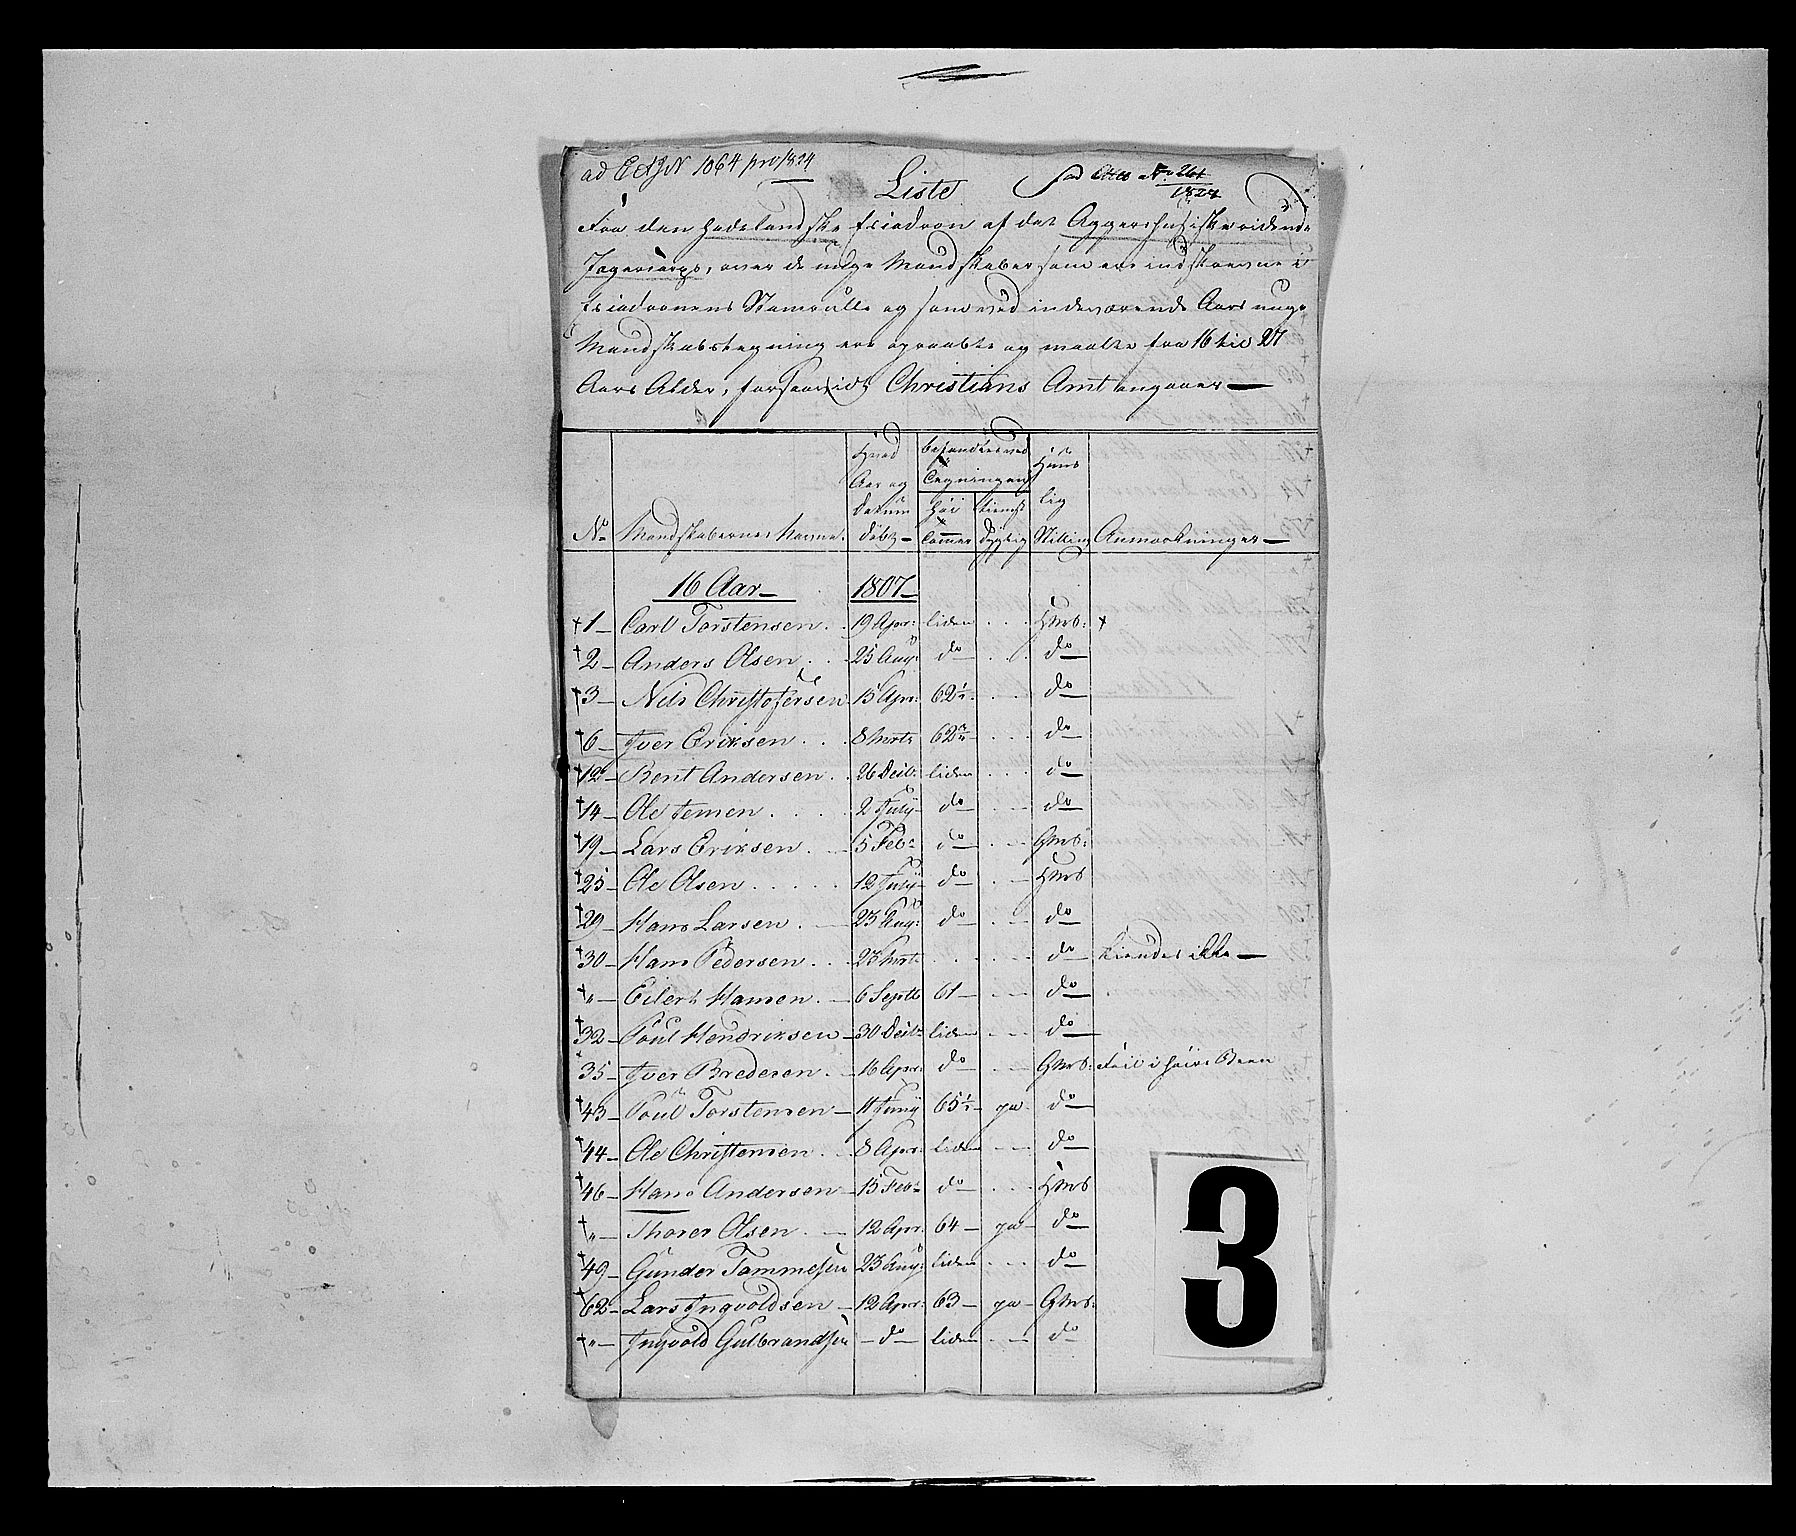 ad E &JN 1064 pro 1824
Liste
ad No 261
1824
Fra den Hadelandske Escadron af det Aggershusiske ridende
Jægercorps, over de unge Mandskaber som ere indskrevne i
Escadronens Stamrulle og som ved indeværende Aars unge
Mandskabstegning ere opraabte og maalte fra 16 til 27
Aars Alder, forsaavidt Christians Amt angaaer
No Mandskabernes Navne. Hvad Aar og Datum Født befandtes ved Tegningen Høi Tommer tienst dygtig Huuslig Stilling Anmærkninger
16 Aar 1807
+ 1 Carl Torstensen 19 Apr: liden Hmds: +
+ 2 Anders Olsen 25 Aug: do do
+ 3 Nils Christofersen 15 Apr: 62½ do
+ 6 Iver Eriksen 8 Marts 62¾ do
+ 12 Bent Andersen 26 Decb: liden do
+ 14 Ole Jensen 2 July do do
+ 19 Lars Eriksen 5 Feb: do Gmds:
+ 25 Ole Olsen 12 July do Hmds
+ 29 Hans Larsen 23 Aug: do do
+ 30 Hans Pedersen 23 Marts do kiendes ikke
+ " Eilert Hansen 6 Septb 61 do
+ 32 Poul Hendriksen 30 Decb: liden do
+ 35 Iver Bredesen 16 Apr: do Gmds: Feil i høire Been
+ 43 Poul Torstensen 11 Juny 65½ ja do
+ 44 Ole Christensen 8 Apr: liden do
+ 46 Hans Andersen 15 Feb: do Hmds
+ " Thorer Olsen 12 Apr: 64 ja do
+ 49 Gunder Tommesen 23 Aug: liden do
+ 62 Lars Ingvoldsen 12 Apr: 63 ja Gmds:
+ " Ingvold Gulbrandsen do liden do
3